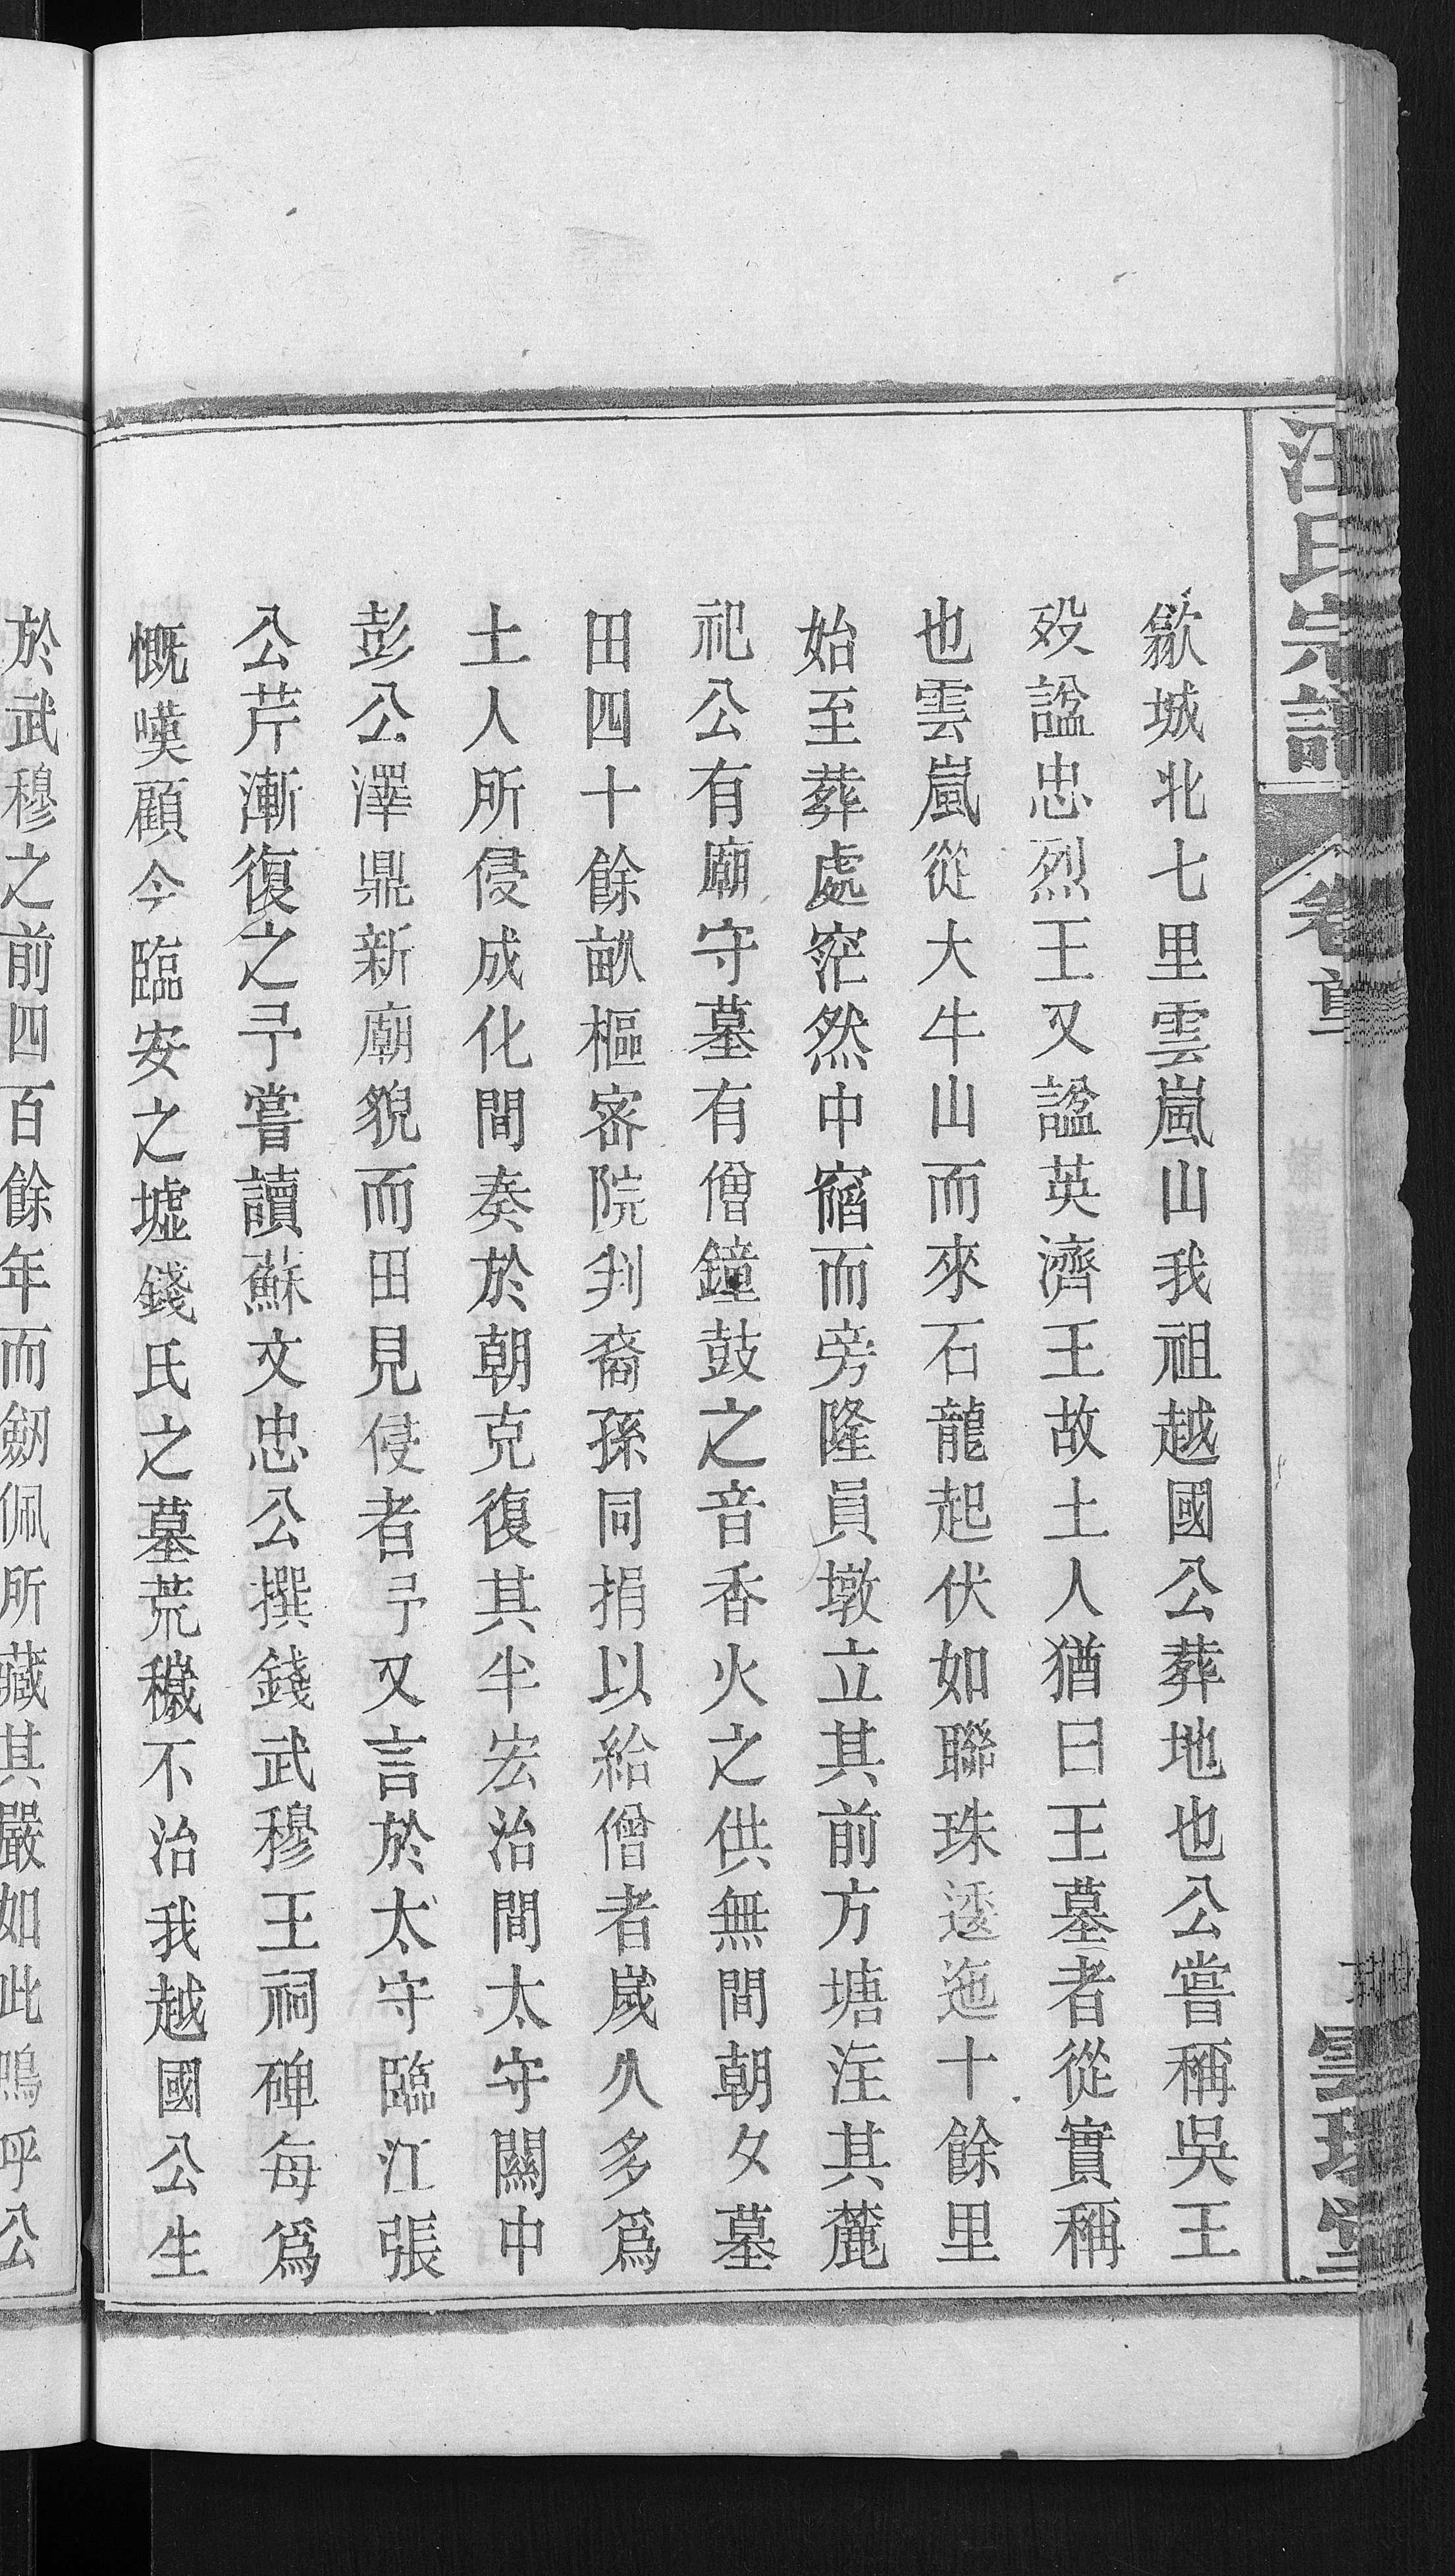 汪氏宗譜
卷首
雲環堂
歙城北七里雲嵐山我祖越國公葬地也公嘗稱吳王
殁諡忠烈王又諡英濟王故土人猶曰王墓者從實稱
也雲嵐從大牛山而來石龍起伏如聯珠逶迤十餘里
始至葬處窪然中窩而旁隆員墩立其前方塘注其麓
祀公有廟守墓有僧鐘鼓之音香火之供無間朝夕墓
田四十餘畝樞密院判裔孫同捐以給僧者歲久多爲
土人所侵成化間奏於朝克復其半宏治間太守關中
彭公澤鼎新廟貌而田見侵者予又言於太守臨江張
公芹漸復之予嘗讀蘇文忠公撰錢武穆王祠碑每爲
慨嘆顧今臨安之墟錢氏之墓荒穢不治我越國公生
於武穆之前四百餘年而劒佩所藏其嚴如此嗚呼公